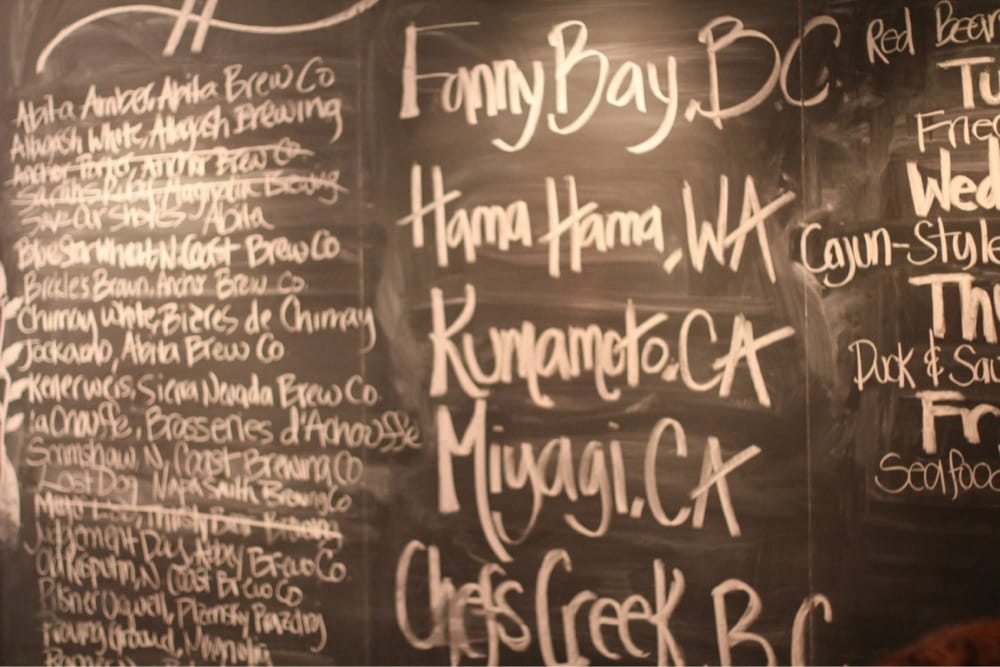 Abita Amber, Abita Brew Co
Allagash White, Allagash Brewing
Anchor Porto, Anchor Brew Co
Save Our Shores Abita
Blue Star Wheat, N. Coast Brew Co
Brekles Brown, Anchor Brew Co
Chimay White, Bières de Chimay
Jockamo, Abita Brew Co
Kellerweis, Sierra Nevada Brew Co.
La Chouffe, Brosseries d'Achouffe
Scrimshaw N. Coast Brewing Co
Lost Dog Napa Smith Brewing Co
Judgement Day, Abbey Brew Co
Old Rasputin, N Coast Brew Co
Pilsner Urquell, Plzensky Prazdroj
Proving Ground, Magnolia
Fanny Bay, BC
Hama Hama, WA
Kumamoto, CA
Miyagi, CA
Chefs Creek BC
Red Bean
Tu
Fried
Wed
Cajun-Style
Thu
Duck & Sau
Fr
Seafood